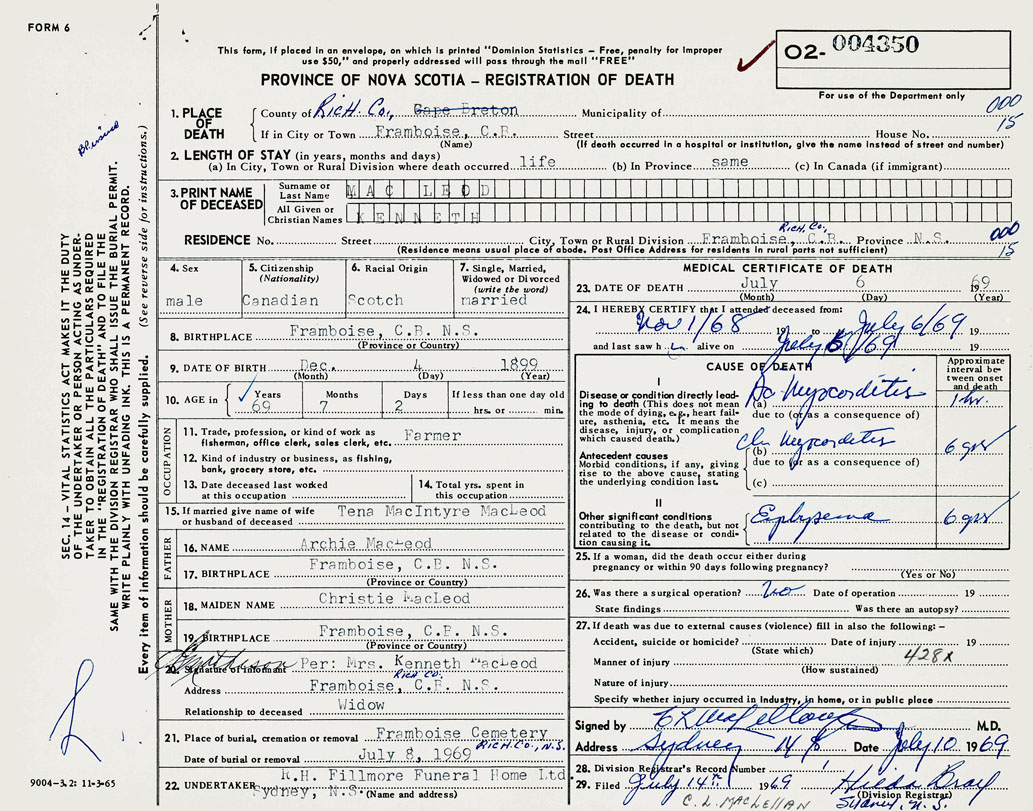 FORM 6
This form, if placed in an envelope, on which is printed "Dominion Statistics – Free, penalty for improper
use $50," and properly addressed will pass through the mail "FREE"
PROVINCE OF NOVA SCOTIA – REGISTRATION OF DEATH
O2- 004350
For use of the Department only
000
15
1. PLACE OF DEATH
County of Rich. Co., Cape Breton Municipality of
If in City or Town Framboise, C.B. Street House No.
(Name) (If death occurred in a hospital or institution, give the name instead of street and number)
2. LENGTH OF STAY (in years, months and days)
(a) In City, Town or Rural Division where death occurred life (b) In Province same (c) In Canada (if immigrant)
3. PRINT NAME OF DECEASED
Surname or Last Name MAC LEOD
All Given or Christian Names KENNETH
Rich. Co.,
RESIDENCE No. Street City, Town or Rural Division Framboise, C.B. Province N.S. 000
15
(Residence means usual place of abode. Post Office Address for residents in rural parts not sufficient)
4. Sex male
5. Citizenship (Nationality) Canadian
6. Racial Origin Scotch
7. Single, Married, Widowed or Divorced (write the word) married
8. BIRTHPLACE Framboise, C.B. N.S.
(Province or Country)
9. DATE OF BIRTH Dec. 4 1899
(Month) (Day) (Year)
10. AGE in Years 69 Months 7 Days 2 If less than one day old hrs. or min.
OCCUPATION
11. Trade, profession, or kind of work as fisherman, office clerk, sales clerk, etc. Farmer
12. Kind of industry or business, as fishing, bank, grocery store, etc.
13. Date deceased last worked at this occupation
14. Total yrs. spent in this occupation
15. If married give name of wife or husband of deceased Tena MacIntyre MacLeod
FATHER
16. NAME Archie MacLeod
17. BIRTHPLACE Framboise, C.B. N.S.
(Province or Country)
MOTHER
18. MAIDEN NAME Christie MacLeod
19. BIRTHPLACE Framboise, C.B. N.S.
(Province or Country)
20. Signature of informant Per: Mrs. Kenneth MacLeod
Rich Co.
Address Framboise, C.B. N.S.
Relationship to deceased Widow
21. Place of burial, cremation or removal Framboise Cemetery
Rich. Co., N.S.
Date of burial or removal July 8, 1969
22. UNDERTAKER R.H. Fillmore Funeral Home Ltd.
Sydney, N.S. (Name and address)
MEDICAL CERTIFICATE OF DEATH
23. DATE OF DEATH July 6 1969
(Month) (Day) (Year)
24. I HEREBY CERTIFY that I attended deceased from:
Nov 1/68 19 to July 6/69 19
and last saw h im alive on July 6/69 19
CAUSE OF DEATH
Approximate interval between onset and death
I
Disease or condition directly leading to death (This does not mean the mode of dying, e.g., heart failure, asthenia, etc. It means the disease, injury, or complication which caused death.)
(a) Ac Myocorditis 1 hr.
due to (or as a consequence of)
Antecedent causes
Morbid conditions, if any, giving rise to the above cause, stating the underlying condition last.
(b) Chr Myocorditis 6 yrs
due to (or as a consequence of)
(c)
II
Other significant conditions contributing to the death, but not related to the disease or condition causing it.
6 yrs
25. If a woman, did the death occur either during pregnancy or within 90 days following pregnancy?
(Yes or No)
26. Was there a surgical operation? No Date of operation 19
State findings Was there an autopsy?
27. If death was due to external causes (violence) fill in also the following: –
Accident, suicide or homicide? Date of injury 19
(State which) 428X
Manner of injury
(How sustained)
Nature of injury
Specify whether injury occurred in Industry, in home, or in public place
Signed by M.D.
Address Sydney N S Date July 10 1969
28. Division Registrar's Record Number
29. Filed July 14th 1969 Hilda Bray
(Division Registrar)
C. L. MACLELLAN Sydney, N.S.
SEC. 14 – VITAL STATISTICS ACT MAKES IT THE DUTY
OF THE UNDERTAKER OR PERSON ACTING AS UNDER-
TAKER TO OBTAIN ALL THE PARTICULARS REQUIRED
IN THE "REGISTRATION OF DEATH" AND TO FILE THE
SAME WITH THE DIVISION REGISTRAR WHO SHALL ISSUE THE BURIAL PERMIT.
WRITE PLAINLY WITH UNFADING INK. THIS IS A PERMANENT RECORD.
Every item of information should be carefully supplied. (See reverse side for instructions.)
9004–3.2: 11-3-65